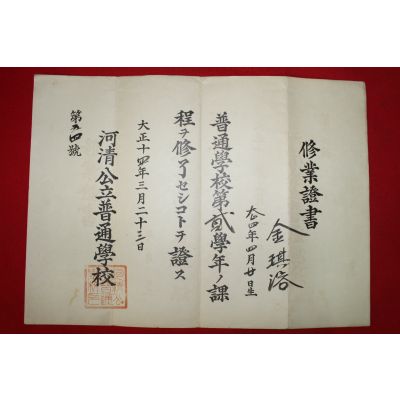 修業證書
金琪洛
大四年四月廿日生
普通學校第貳學年ノ課
程ヲ修了セシコトヲ證ス
大正十四年三月二十三日
河清公立普通學校
第五四號